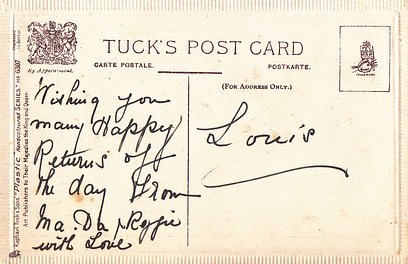 TUCK'S POST CARD
By Appointment.
CARTE POSTALE.
POSTKARTE.
(FOR ADDRESS ONLY.)
Raphael Tuck & Sons' "PLASTIC Handcoloured SERIES"
Art Publishers to Their Majesties the King and Queen
Wishing you
many Happy
Returns of
the day From
Ma. Da, Reggie
with Love
Louis